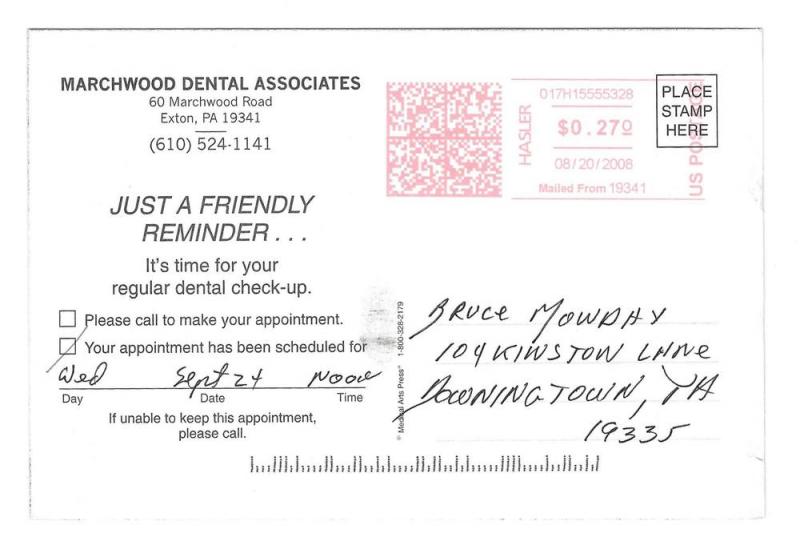 MARCHWOOD DENTAL ASSOCIATES
60 Marchwood Road
Exton, PA 19341
(610) 524-1141
JUST A FRIENDLY
REMINDER . . .
It's time for your
regular dental check-up.
Please call to make your appointment.
Your appointment has been scheduled for
Wed Sept 24 Noon
Day Date Time
If unable to keep this appointment,
please call.
HASLER
017H15555328
$0.270
08/20/2008
Mailed From 19341
US POSTAGE
PLACE
STAMP
HERE
© Medical Arts Press® 1-800-328-2179
BRUCE MOWDAY
104 KINSTON LANE
DOWNINGTOWN, PA
19335